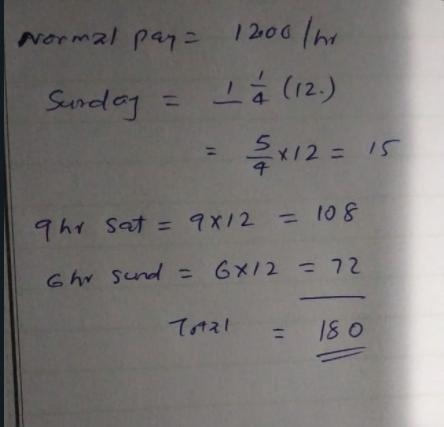 Normal pay = 1200/hr
Sunday = 1 1/4 (12.)
= 5/4 x 12 = 15
9hr sat = 9x12 = 108
6hr sund = 6x12 = 72
Total = 180